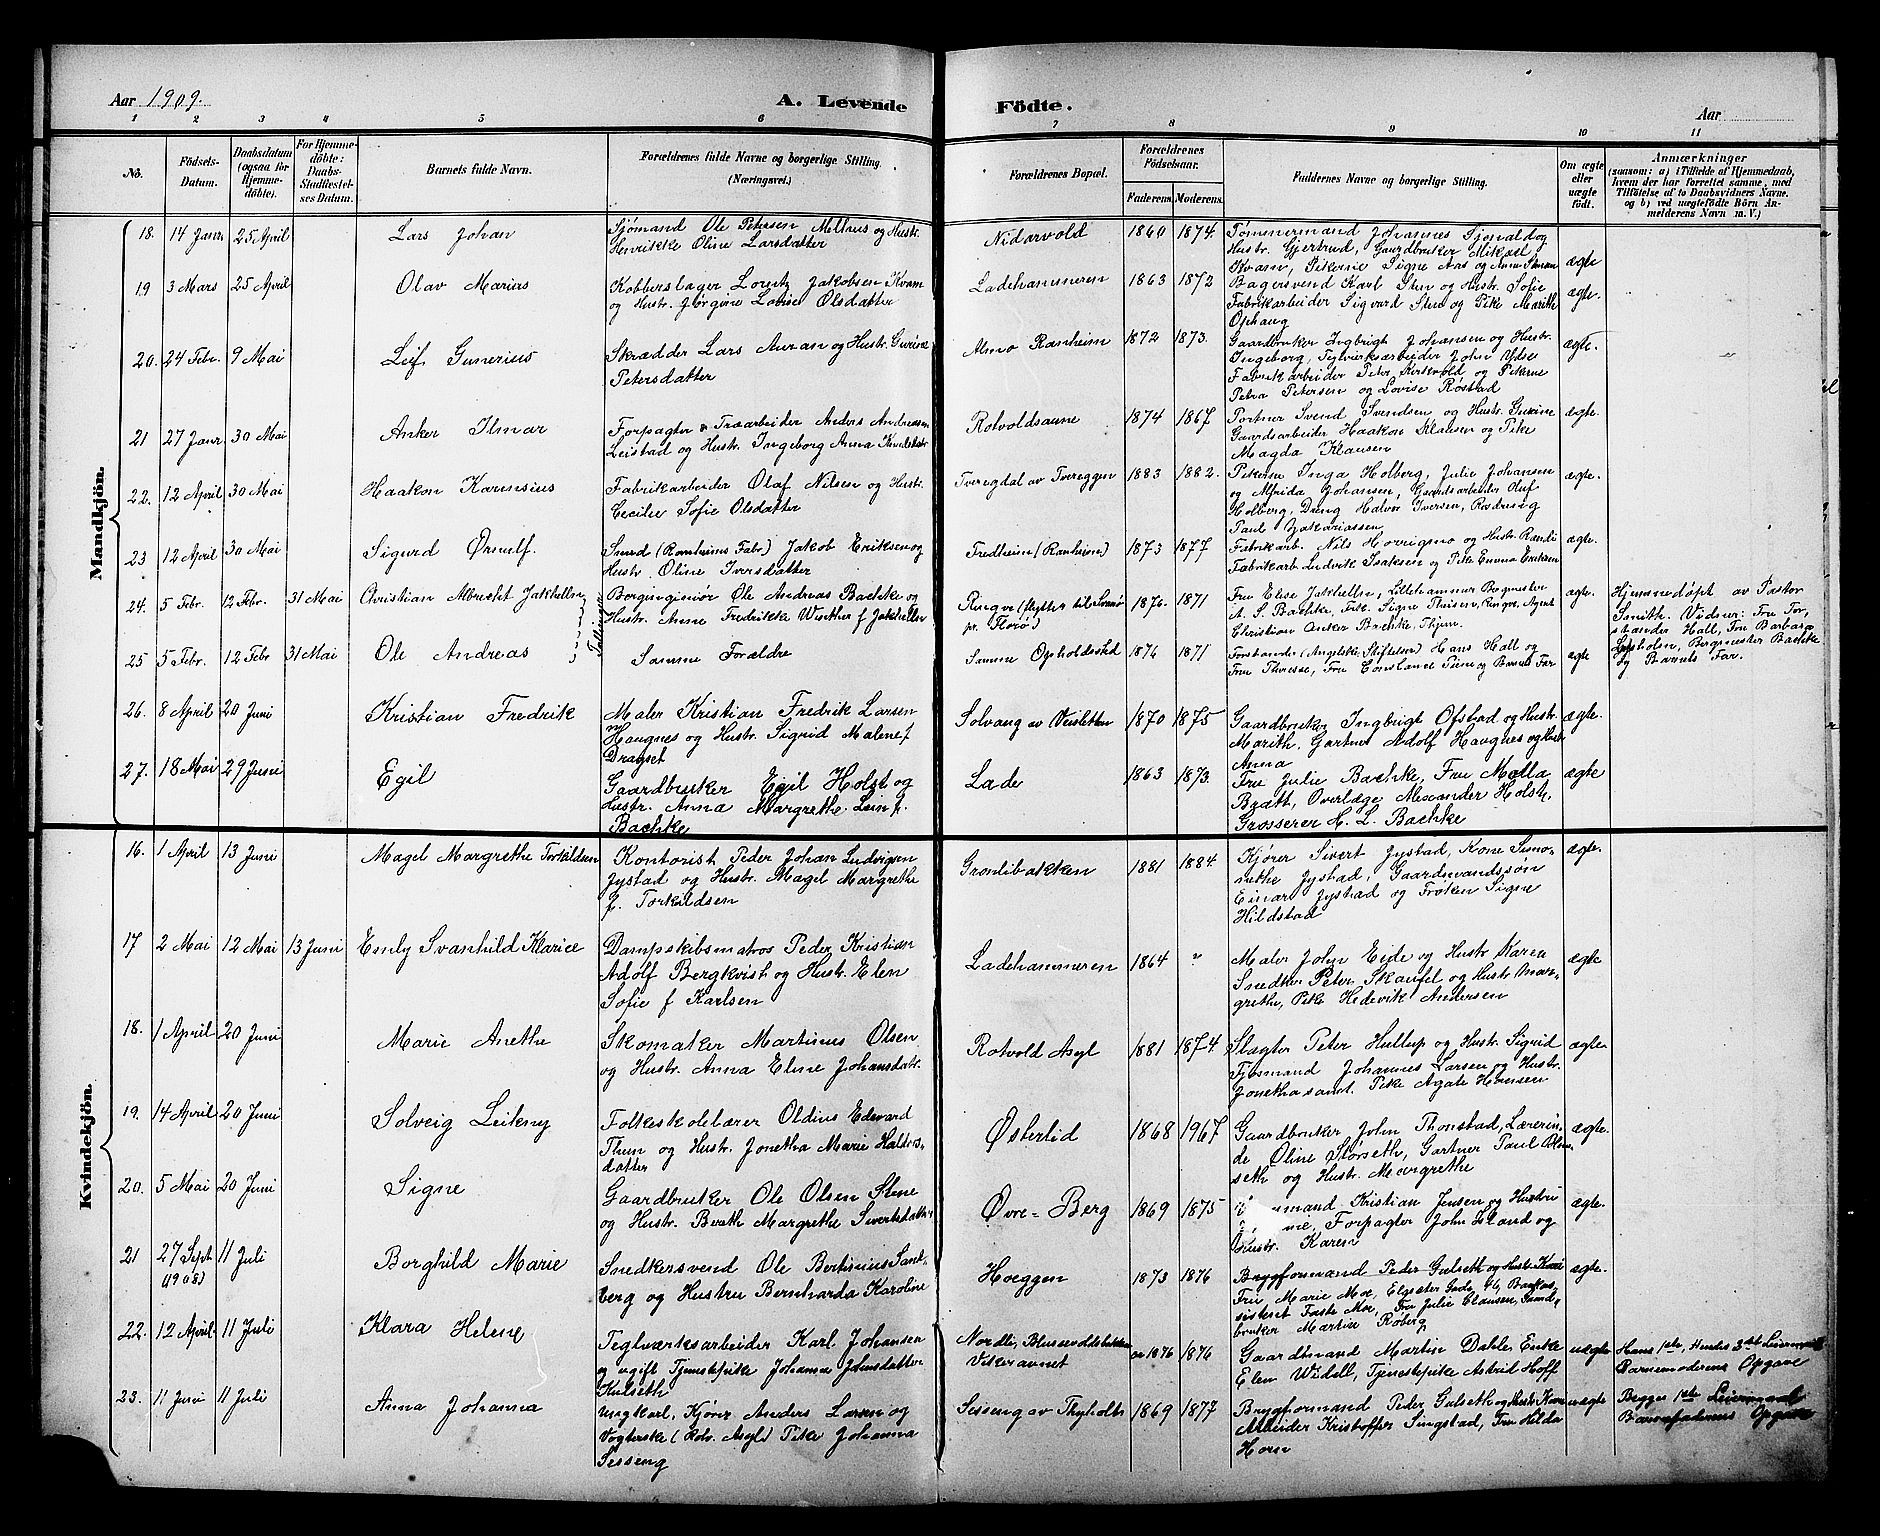 Aar 1909.
A. Levende
Födte.
Aar
1 2 3 4 5 6 7 8 9 10 11
No.
Födsels-
Datum.
Daabsdatum
(ogsaa for
Hjemme-
döbte).
For Hjemme-
döbte:
Daabs-
Stadfæstel-
ses Datum.
Barnets fulde Navn.
Forældrenes fulde Navne og borgerlige Stilling.
(Næringsvei.)
Forældrenes Bopæl.
Forældrenes
Födselsaar.
Faderens. Moderens.
Faddernes Navne og borgerlige Stilling.
Om ægte
eller
uægte
födt.
Anmærkninger
(saasom: a) i Tilfælde af Hjemmedaab,
hvem der har forrettet samme, med
Tilföielse af to Daabsvidners Navne.
og b) ved uægtefödte Börn An-
melderens Navn m. V.)
Mandkjön.
18. 14 Janr 25 April
Lars Johan
Sjömand Ole Petersen og Hustr.
Henrikke Oline Larsdatter
Nidarvold
1860 1874.
Tömmermand Johannes
Hustr. Gjertrud, Gaardbruker Mikael
Kvam, Pikerne Signe Aas og
ægte
19 3 Mars 25 April
Olav Marius
Kobberslager Lorentz Jakobsen Kvam
og Hustr. Jörgine Lovise Olsdatter
Ladehammeren
1863 1872
Bagersvend Karl Sten og Hustr. Sofie
Fabrikarbeider Sigvard Sten og Pike Marith
Ophaug
ægte.
20. 24 Febr. 9 Mai
Leif Gunerius
Skrædder Lars Auran og Hustr. Gurine
Petersdatter
Almo Ranheim
1872 1873.
Gaardbruker Ingbrigt Johansen og Hustr.
Ingeborg, Teglværksarbeider John Ydse
Fabrikarbeider Peter og Pikerne
Petra Petersen og Lovise Röstad
ægte.
21 27 Janr 30 Mai
Anker Ilmar
Forpagter & Træarbeider Anders Andreassen
Leistad og Hustr. Ingeborg Anna
Rotvoldsaune
1874 1867
Portner Svend Svendsen og Hustr. Gurine
Gaardsarbeider Haakon Klausen og Pike
Magda Klausen
ægte.
22. 12 April 30 Mai
Haakon Karensius
Fabrikarbeider Olaf Nilsen og Hustr.
Cecilie Sofie Olsdatter
Tveregdal av Tvereggen
1883 1882.
Pikerne Inga Holberg, Julie Johansen
og Alfrida Johansen, Gaardsarbeider Oluf
Holberg, Dreng Halvor Iversen,
Paul Zakariassen
ægte.
23 12 April 30 Mai
Sigurd Örnulf.
Smed (Ranheims Fabr.) Jakob Eriksen og
Hustr. Oline Iversdatter
Fredheim (Ranheim)
1873 1877
Fabrikarb. Nils og Hustr. Randi
Fabrikarb. Ludvik Isaksen og Pike Emma Eriksen
ægte.
24. 5 Febr. 12 Febr. 31 Mai
Christian Albrecht Jakhellen
Tvillinger
Borgingeniör Ole Andreas Bachke og
Hustr. Anne Fredrikke Winther f. Jakhellen
Ringve (flytter til
pr. Florö)
1876. 1871
Fru Elise Jakhellen, Lillehammer Bergmester
A. S. Bachke, Frk. Signe Thaisen, Ringve, Agent
Christian Anker Bachke, Thjem.
ægte.
Hjemmedöpt av Pastor
Smith. Vidner: Fru For-
stander Hall, Fru Barbara
Lysholm, Bergmester Bachke
og Barnets Far.
25 5 Febr. 12 Febr 31 Mai
Ole Andreas
Samme Forældre
Samme Opholdssted
1876 1871
Forstander Hans Hall og
Fru Therese, Fru Constance og Barnets Far
ægte
26. 8 April 20 Juni
Kristian Fredrik
Maler Kristian Fredrik Larsen
Haugnes og Hustr. Sigrid Malene f.
Dragset
Solvang av Veisletten
1870 1875
Gaardbruker Ingbrigt Ofstad og Hustr.
Marith. Gartner Adolf Haugnes og Hustr.
Anna
ægte.
27. 18 Mai 29 Juni
Egil
Gaardbruker Egil Holst og
Hustr. Anna Margrethe Lein f.
Bachke
Lade
1863 1873.
Fru Julie Bachke, Fru Molla
Bræth, Overlæge Alexander Holst,
Grosserer H. L. Bachke
ægte
Kvindekjön.
16. 1 April 13 Juni
Magel Margrethe Torkildsen
Kontorist Peder Johan Ludvigsen
Jystad og Hustr. Magel Margrethe
f. Torkildsen
Grönlibakken
1881 1884.
Kjörer Sivert Jystad, Kone Simo-
nethe Jystad, Gaardmandssön
Einar Jystad og Fröken Signe
Hildstad
ægte.
17 2 Mai 12 Mai 13 Juni
Emly Svanhild Klarice
Dampskibsmatros Peder Kristian
Adolf Bergkvist og Hustr. Elen
Sofie f Karlsen
Ladehammeren
1864 "
Maler John Eide og Hustr Karen
Snedker Peter Skaufel og Hustr Mar-
grethe, Pike Hedevik Andersen
ægte
18. 1 April 20 Juni
Marie Anethe
Skomaker Martinus Olsen
og Hustr. Anna Eline Johansdatr.
Rotvold Asyl
1881 1874.
Slagter Peter Hullup og Hustr Sigrid
Fjösmand Johannes Larsen og Hustr.
Jonetha samt Pike Agate Hansen
ægte
19. 14 April 20 Juni
Solveig Leikny
Folkeskolelærer Oldius Edevard
Thun og Hustr. Jonetha Marie Haldors-
datter
Östertid
1868 1967
Gaardbruker John Thonstad, Lærerin-
de Oline Störseth, Gartner Paul Olm-
seth og Hustr. Margrethe
ægte.
20. 5 Mai 20 Juni
Signe
Gaardbruker Ole Olsen Stene
og Hustr. Berethe Margrethe Sivertsdatter
Övre-Berg
1869 1875
mand Kristian Jensen og Hustru
Forpagter John Eland og
Hustr. Karen
ægte.
21 27 Sept 11 Juli
(1908)
Borghild Marie
Snedkersvend Ole Bertinius Sand-
berg og Hustru Bernharda Karoline
Hoeggen
1873 1876
Brygformand Peder Gulseth og Hustr. Kari
Fru Marie Moe, Elgseter Gade 12, Bankas-
sistent Faste Moe, Fru Julie Clausen,
bruker Martin Röberg
ægte.
22. 12 April 11 Juli
Klara Helene
Teglværksarbeider Karl Johansen
og ugift Tjenestepike Johanne Johnsdatter
Kulseth
Nordli,
Vikeraunet
1876 1876
Gaardmand Martin Dahle, Enke
Elen Widell, Tjenestepike Astrid Hoff
uægte
Hans 1ste, Hendes 3die Leiermaal
Barnemoderens Opgave
23. 11 Juni 11 Juli
Anna Johanna
Ungkarl, Kjörer Anders Larsen og
Vogterske (Rotv. Asyl) Pike Johanna
Sesseng
Sesseng av Thyholts
1869 1877
Brygformand Peder Gulseth og Hustr. Kari
Arbeider Kristoffer Singstad, Fru Hilda
Horn
uægte
Begges 1ste Leiermaal
Barnefaderens Opgave